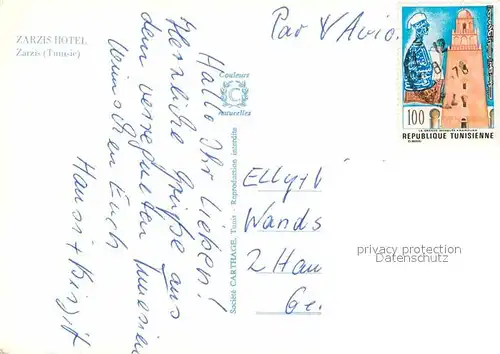 ZARZIS HOTEL
Zarzis (Tunisie)
Par Avion
Hallo Ihr Lieben!
Herzliche Grüße aus
dem verregneten Tunesien
wünschen Euch
Hansi + Birgit
Couleurs
Naturelles
Société CARTHAGE, Tunis - Reproduction interdite
100
REPUBLIQUE TUNISIENNE
Elly +
Wands
2 Ham
Ge
privacy protection
Datenschutz